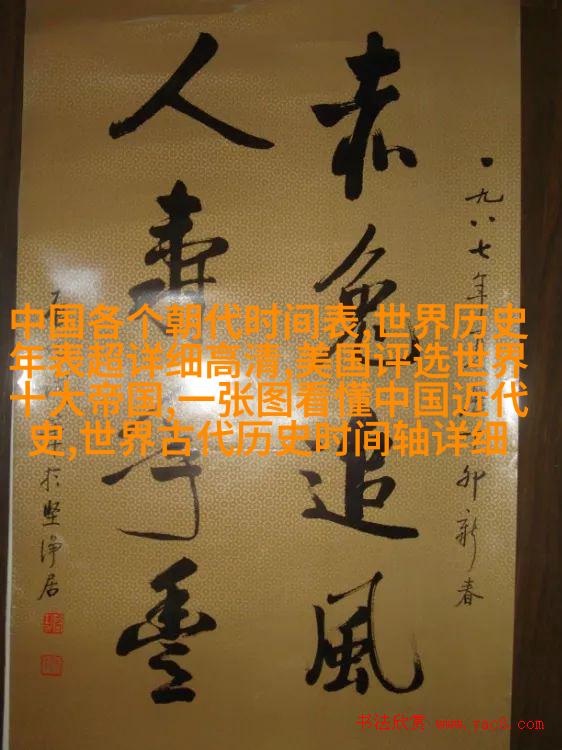 一九八七年
卯新春
赤兔追風
人寿年豐
於坚浄居
中国各个朝代时间表,世界历史
年表超详细高清,美国评选世界
十大帝国,一张图看懂中国近代
史,世界古代历史时间轴详细
书法欣赏 www.yac8.com